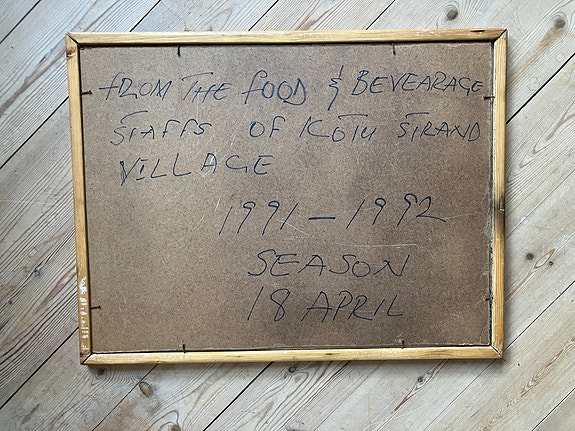 FROM THE FOOD & BEVEARAGE
STAFFS OF KOTU STRAND
VILLAGE
1991 - 1992
SEASON
18 APRIL